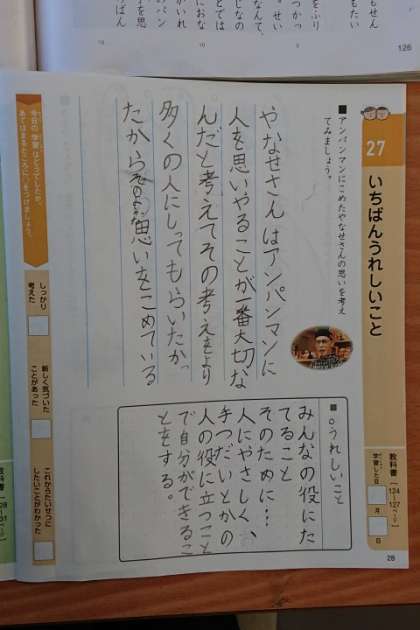 126
27
いちばんうれしいこと
教科書
124
127
ページ
学習した日
月
日
■アンパンマンにこめたやなせさんの思いを考え
てみましょう。
やなせさんはアンパンマンに
人を思いやることが一番大切な
んだと考えてその考えをより
多くの人にしってもらいたかっ
たからそのような思いをこめている
■。うれしいこと
みんなの役にた
てること
そのために…
人にやさしく、
手つだいとかの
人の役に立つこと
で自分ができるこ
とをする。
今日の学習はどうでしたか。
あてはまるところに○をつけましょう。
しっかり
考えた
新しく気づいた
ことがあった
これからたいせつに
したいことがわかった
28
教科書
128
131
ページ